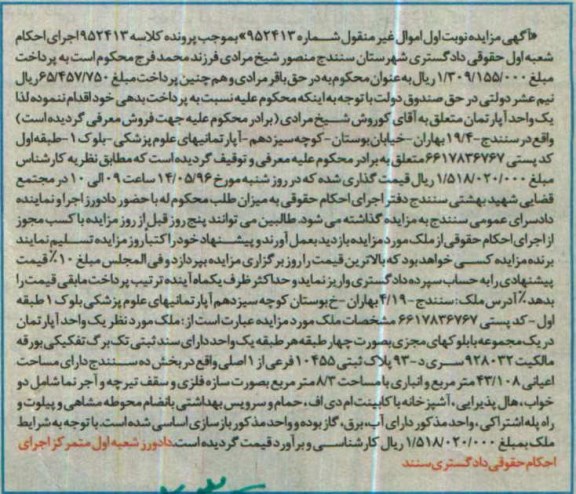 «آگهی مزایده نوبت اول اموال غیر منقول شماره ۹۵۲۴۱۳» بموجب پرونده کلاسه ۹۵۲۴۱۳ اجرای احکام
شعبه اول حقوقی دادگستری شهرستان سنندج منصور شیخ مرادی فرزند محمد فرج محکوم است به پرداخت
مبلغ ۱/۳۰۹/۱۵۵/۰۰۰ ریال به عنوان محکوم به در حق باقر مرادی و هم چنین پرداخت مبلغ ۶۵/۴۵۷/۷۵۰ ریال
نیم عشر دولتی در حق صندوق دولت با توجه به اینکه محکوم علیه نسبت به پرداخت بدهی خود اقدام ننموده لذا
یک واحد آپارتمان متعلق به آقای کوروش شیخ مرادی (برادر محکوم علیه جهت فروش معرفی گردیده است)
واقع در سنندج -۱۹/۴ بهاران -خیابان بوستان - کوچه سیزدهم - آپارتمانیهای علوم پزشکی - بلوک ۱- طبقه اول
کد پستی ۶۶۱۷۸۳۶۷۶۷ متعلق به برادر محکوم علیه معرفی و توقیف گردیده است که مطابق نظریه کارشناس
مبلغ ۱/۵۱۸/۰۲۰/۰۰۰ ریال قیمت گذاری شده که در روز شنبه مورخ ۱۴/۰۵/۹۶ ساعت ۰۹ الی ۱۰ در مجتمع
قضایی شهید بهشتی سنندج دفتر اجرای احکام حقوقی به میزان طلب محکوم له با حضور دادورز اجرا و نماینده
دادسرای عمومی سنندج به مزایده گذاشته می شود. طالبین می توانند پنج روز قبل از روز مزایده با کسب مجوز
از اجرای احکام حقوقی از ملک مورد مزایده بازدید بعمل آورند و پیشنهاد خود را کتباً روز مزایده تسلیم نمایند
برنده مزایده کسی خواهد بود که بالاترین قیمت را روز برگزاری مزایده بپردازد و فی المجلس مبلغ ۱۰٪ قیمت
پیشنهادی را به حساب سپرده دادگستری واریز نماید و حداکثر ظرف یکماه آینده ترتیب پرداخت مابقی قیمت را
بدهد./ آدرس ملک: سنندج - ۴/۱۹ بهاران - خ بوستان کوچه سیزدهم آپارتمانهای علوم پزشکی بلوک ۱ طبقه
اول - کد پستی ۶۶۱۷۸۳۶۷۶۷ مشخصات ملک مورد مزایده عبارت است از: ملک مورد نظر یک واحد آپارتمان
در یک مجموعه با بلوکهای مجزی بصورت چهار طبقه هر طبقه یک واحد دارای سند ثبتی تک برگ تفکیکی بورقه
مالکیت ۹۲۸۰۳۲ سری د-۹۳ پلاک ثبتی ۱۰۴۵۵ فرعی از ۱ اصلی واقع در بخش ده سنندج دارای مساحت
اعیانی ۴۳/۱۰۸ متر مربع و انباری با مساحت ۸/۳ متر مربع بصورت سازه فلزی و سقف تیرچه و آجر نما شامل دو
خواب، هال پذیرایی، آشپزخانه با کابینت ام دی اف، حمام و سرویس بهداشتی بانضام محوطه مشاهی و پیلوت و
راه پله اشتراکی، واحد مذکور دارای آب، برق، گاز بوده و واحد مذکور بازسازی اساسی شده است. با توجه به شرایط
ملک بمبلغ ۱/۵۱۸/۰۲۰/۰۰۰ ریال کارشناسی و برآورد قیمت گردیده است. دادورز شعبه اول متمرکز اجرای
احکام حقوقی دادگستری سنند